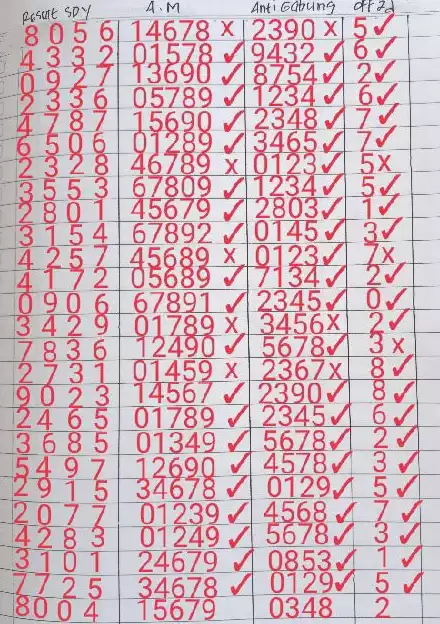 Result SDY A.M Anti Gabung off 2d
8056 14678 x 2390 x 5 ✓
4332 01578 ✓ 9432 ✓ 6 ✓
0927 13690 ✓ 8754 ✓ 2 ✓
2336 05789 ✓ 1234 ✓ 6 ✓
4787 15690 ✓ 2348 ✓ 7 ✓
6506 01289 ✓ 3465 ✓ 7 ✓
2328 46789 x 0123 ✓ 5 x
3553 67809 ✓ 1234 ✓ 5 ✓
2801 45679 ✓ 2803 ✓ 1 ✓
3154 67892 ✓ 0145 ✓ 3 ✓
4257 45689 x 0123 ✓ 7 x
4172 05689 ✓ 7134 ✓ 2 ✓
0906 67891 ✓ 2345 ✓ 0 ✓
3429 01789 x 3456 x 2 ✓
7836 12490 ✓ 5678 ✓ 3 x
2731 01459 x 2367 x 8 ✓
9023 14567 ✓ 2390 ✓ 8 ✓
2465 01789 ✓ 2345 ✓ 6 ✓
3685 01349 ✓ 5678 ✓ 2 ✓
5497 12690 ✓ 4578 ✓ 3 ✓
2915 34678 ✓ 0129 ✓ 5 ✓
2077 01239 ✓ 4568 ✓ 7 ✓
4283 01249 ✓ 5678 ✓ 3 ✓
3101 24679 ✓ 0853 ✓ 1 ✓
7725 34678 ✓ 0129 ✓ 5 ✓
8004 15679 0348 2